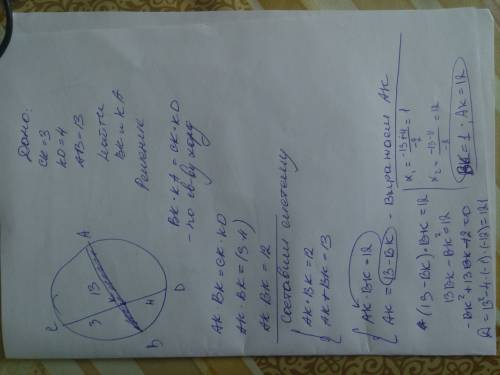 Дано:
CK = 3
KD = 4
AB = 13
Найти
BK и KA
Решение
C
A
3
13
K
4
B
D
BK · KA = CK · KD
- по св-ву хорд
AK · BK = CK · KD
AK · BK = (3·4)
AK · BK = 12
Составим систему
{ AK · BK = 12
AK + BK = 13
{ AK · BK = 12
AK = (13 - BK) - Выражаем AK
(13 - BK) · BK = 12
13BK - BK² = 12
-BK² + 13BK - 12 = 0
D = 13² - 4·(-1)·(-12) = 121
x₁ = -13+11/-2 = 1
x₂ = -13-11/-2 = 12
BK = 1; AK = 12